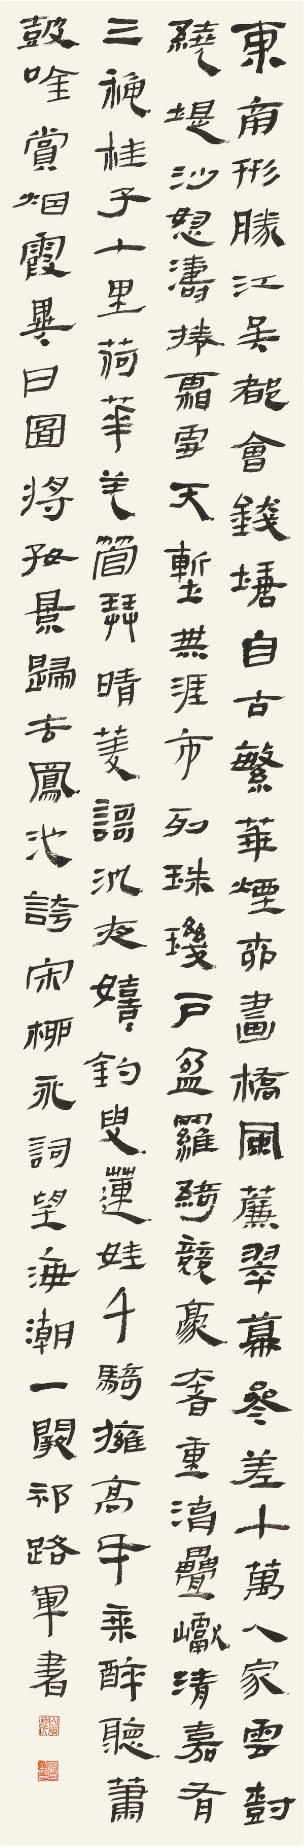 東南形勝江吳都會錢塘自古繁華煙柳畫橋風簾翠幕參差十萬人家雲樹
繞堤沙怒濤捲霜雪天塹無涯市列珠璣戶盈羅綺競豪奢重湖疊巘清嘉有
三秋桂子十里荷華羌管弄晴菱謌泛夜嬉嬉釣叟蓮娃千騎擁高牙乘醉聽蕭
鼓吟賞烟霞異日圖將好景歸去鳳池誇宋柳永詞望海潮一闋祁路軍書